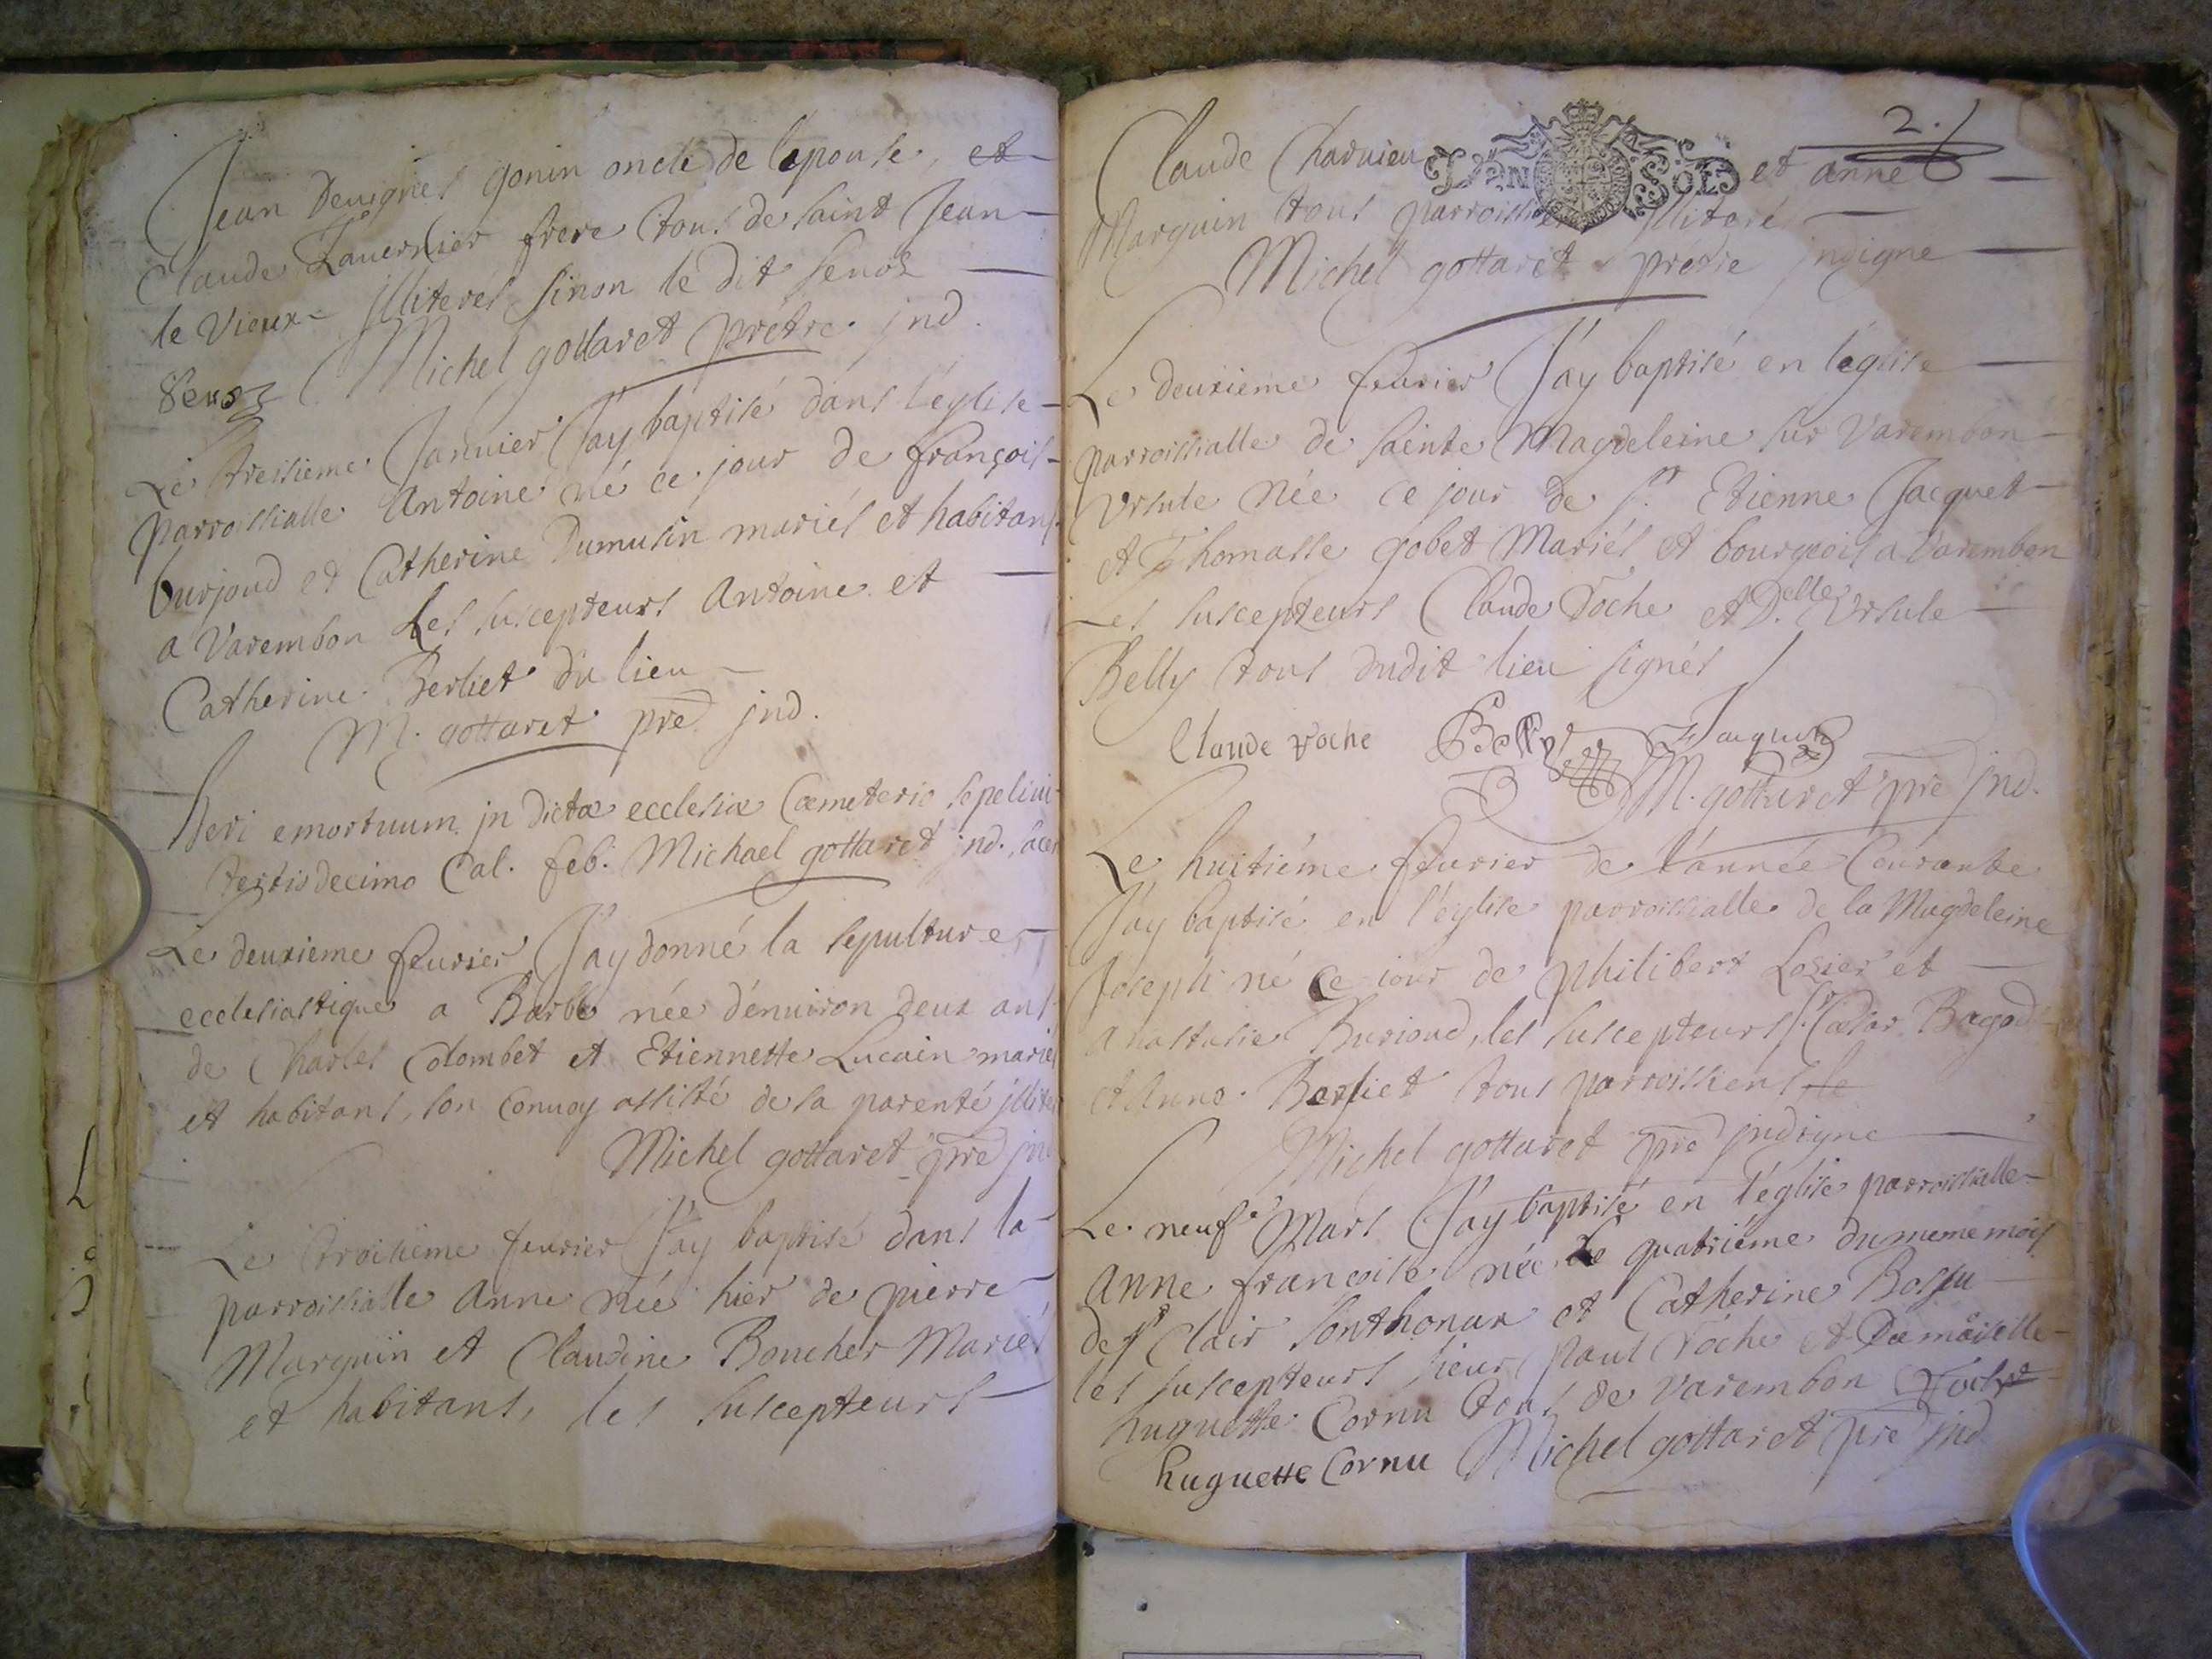 Jean Devignes gonin oncle de lepouse, et
Claude Tavernier frere tous de saint Jean
le Vieux jlliterés sinon le dit senoz
Michel gottaret prêtre jnd.
Senoz
Le treisieme Janvier J'ay baptisé dans l'église
parroissialle Antoine né ce jour de françois
burjoud et Catherine Dumusin mariés et habitans
a Varembon Les suscepteurs Antoine et
Catherine Berliet du lieu
M. gottaret pre jnd.
heri emortuum jn dictæ ecclesiæ Cæmeterio sepelivi
tertio decimo Cal. feb. Michael gottaret jnd. sacer
Le deuxieme fevrier J'ay donné la sepulture
ecclesiastique a Barbe née d'environ deux ans
de Charles Colombet et Etiennette Lucain mariés
et habitans, son convoy assisté de sa parenté jlliter
Michel gottaret pre jnd
Le troisieme fevrier J'ay baptisé dans la
parroissialle Anne née hier de pierre
Marguin et Claudine Boucher Mariés
et habitans, les suscepteurs
2.
Claude Charvieu et anne
DEN SOLS
Marguin tous parroissiens jlliterés
Michel gottaret prêtre jndigne
Le deuxieme fevrier J'ay baptisé en l'eglise
parroissialle de sainte Magdeleine sur Varembon
Ursule née ce jour de sr. Etienne Jacquet
et Thomasse gobet Mariés et bourgeois a Varembon
Les suscepteurs Claude Voche et D.elle Ursule
Belly tous dudit lieu signés
Claude voche Belly Jacquet
M. gottaret pre jnd.
Le huitiéme fevrier de l'année Courante
J'ay baptisé en l'église parroissialle de la Magdeleine
Joseph né ce jour de philibert Losier et
Anastasie Burioud, les suscepteurs sr. Cæsar Bagod
et Anne Berliet tous parroissiens le
Michel gottaret pre jndigne
Le neufe Mars J'ay baptisé en l'église parroissialle
Anne françoise née Le quatriéme du meme mois
de sr Clair Sonthonax et Catherine Bossu
les suscepteurs sieur paul Voche et Damoiselle
huguette Cornu tous de Varembon Voche
huguette Cornu Michel gottaret pre jnd